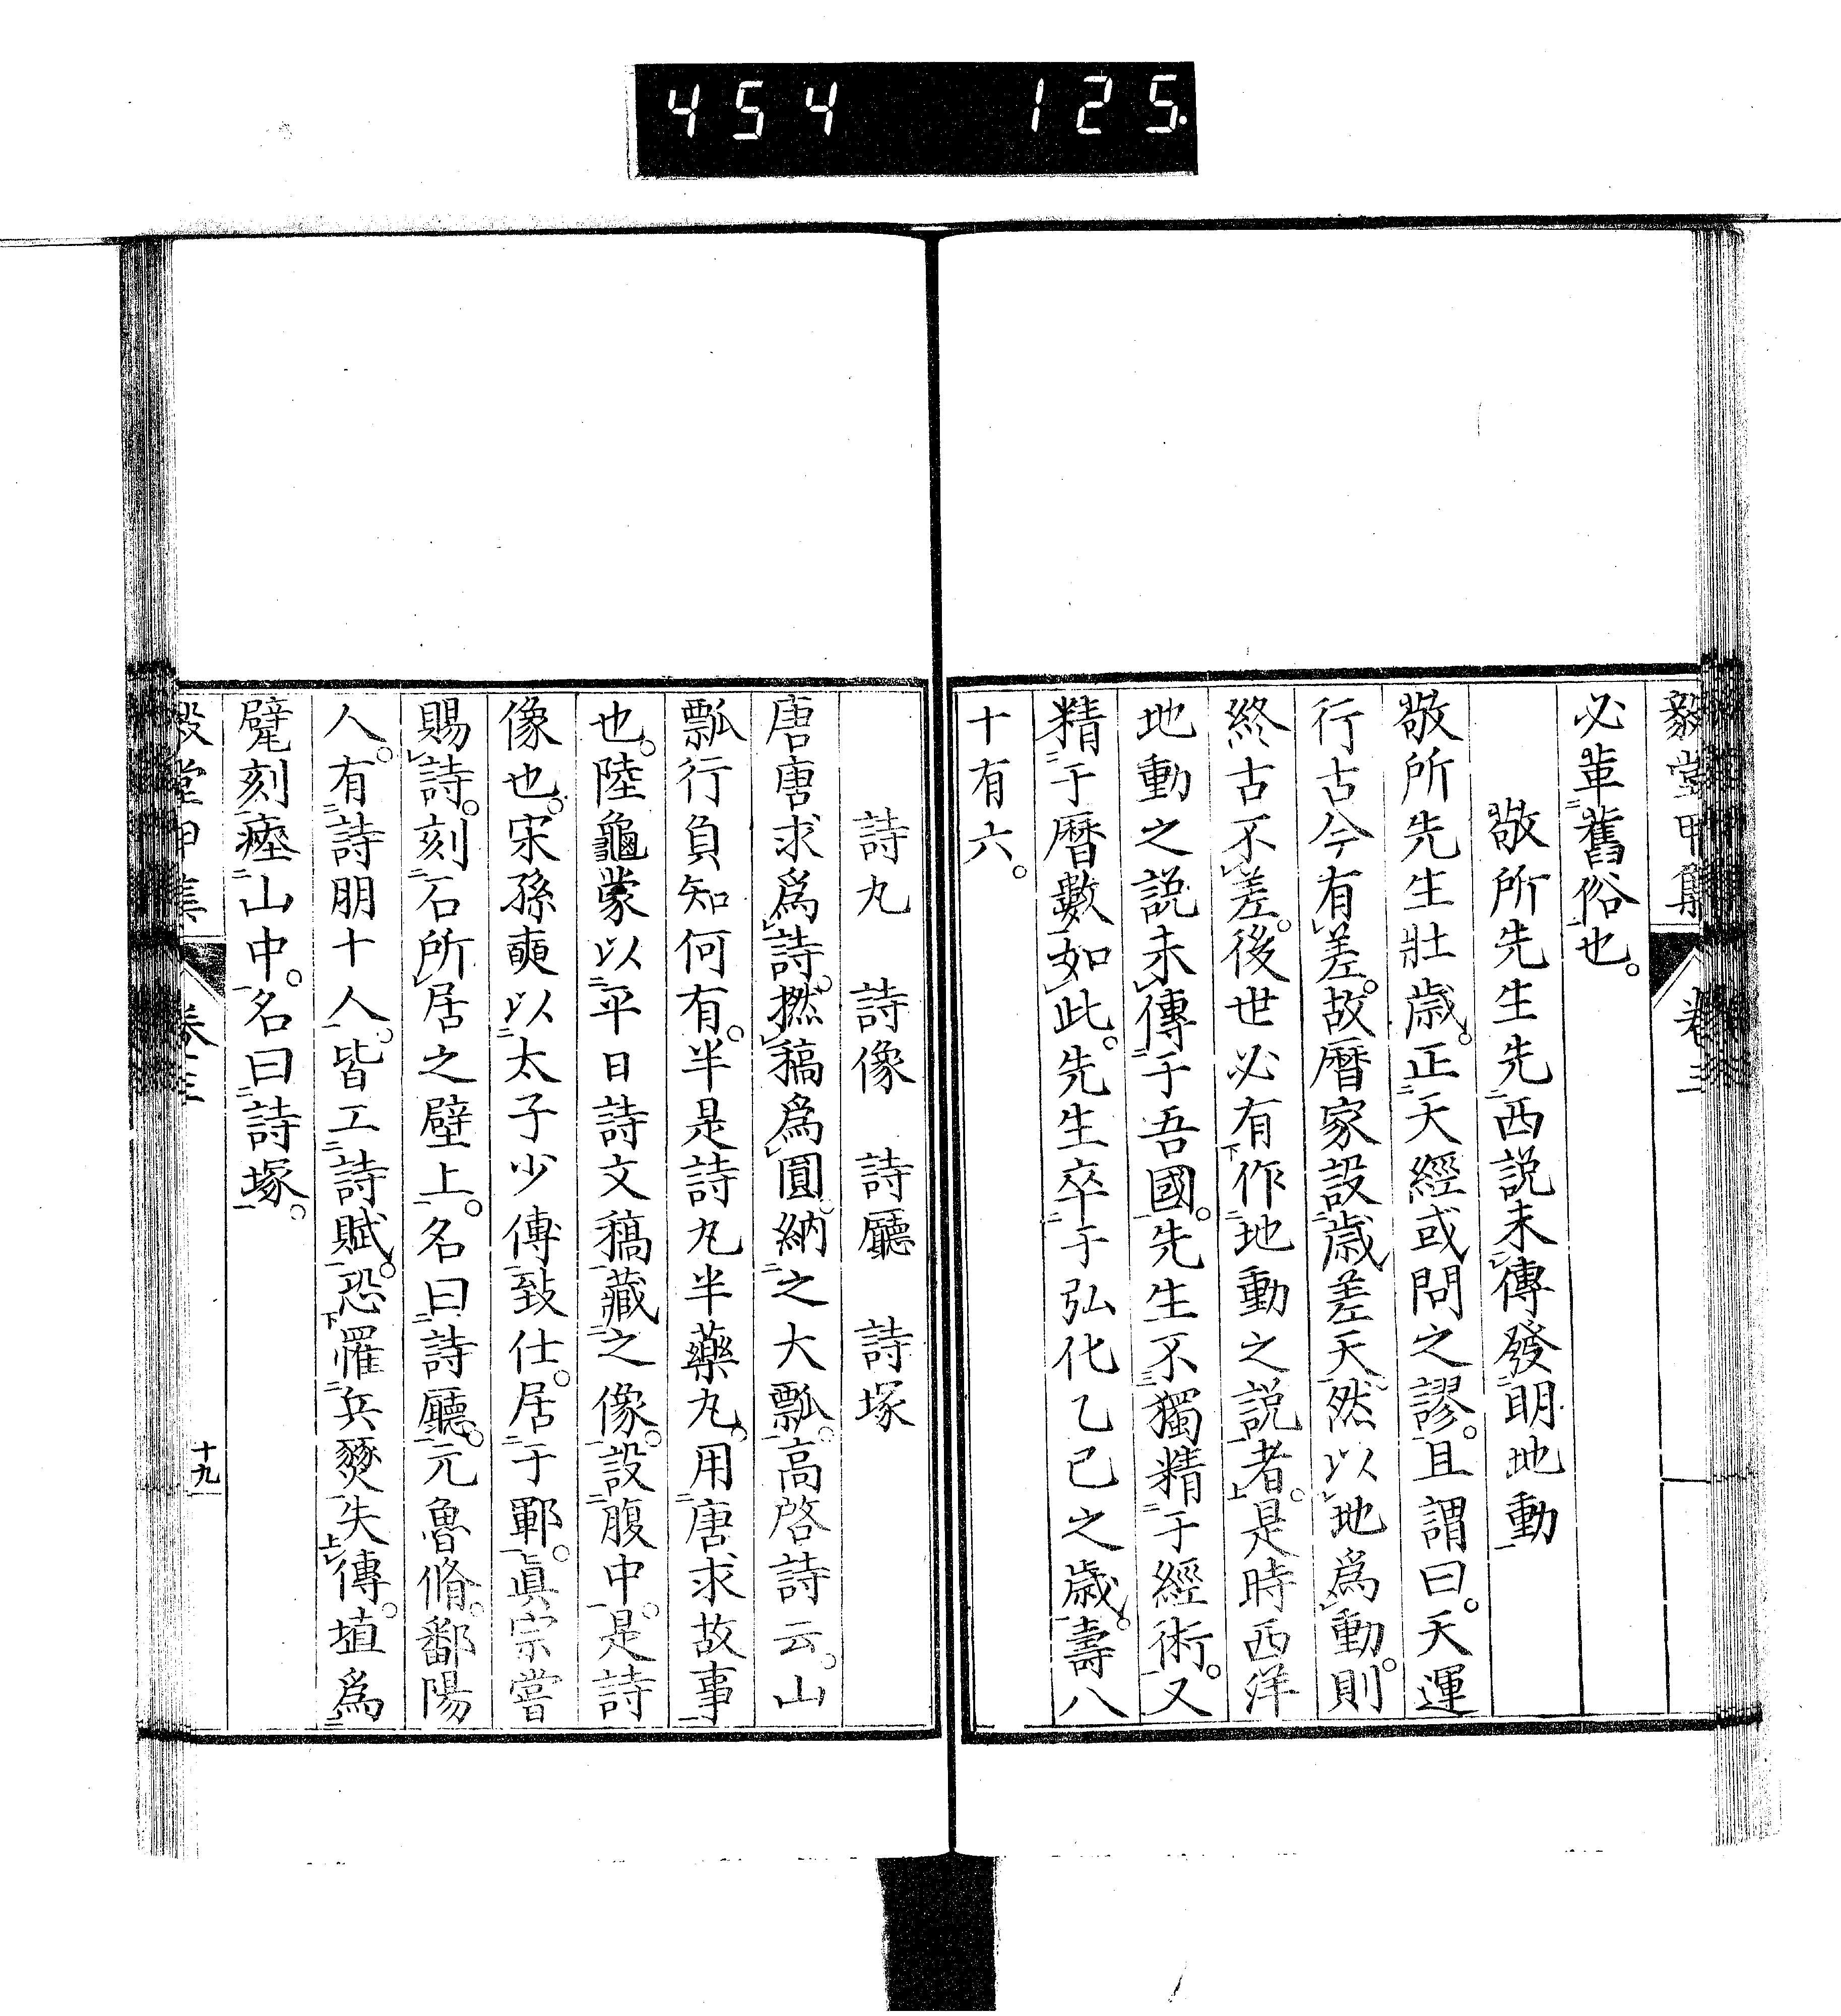 454 125.
毅堂甲集 卷三
必革舊俗也。
敬所先生先西説未傳發明地動
敬所先生壯歳。正天經或問之謬。且謂曰。天運
行古今有差。故曆家設歳差。天然以地爲動。則
終古不差。後世必有作地動之説者。是時西洋
地動之説未傳于吾國。先生不獨精于經術。又
精于曆數如此。先生卒于弘化乙巳之歳。壽八
十有六。
詩丸 詩像 詩廳 詩塚
唐唐求爲詩。撚稿爲圓。納之大瓢。高啓詩云。山
瓢行負知何有。半是詩丸半藥丸。用唐求故事
也。陸龜蒙以平日詩文稿藏之像。設腹中。是詩
像也。宋孫奭以太子少傅致仕。居于鄆。眞宗嘗
賜詩。刻石所居之壁上。名曰詩廳。元魯脩。鄱陽
人。有詩朋十人。皆工詩賦。恐罹兵燹失傳。埴爲
甓刻瘞山中。名曰詩塚。
毅堂甲集 卷三 十九